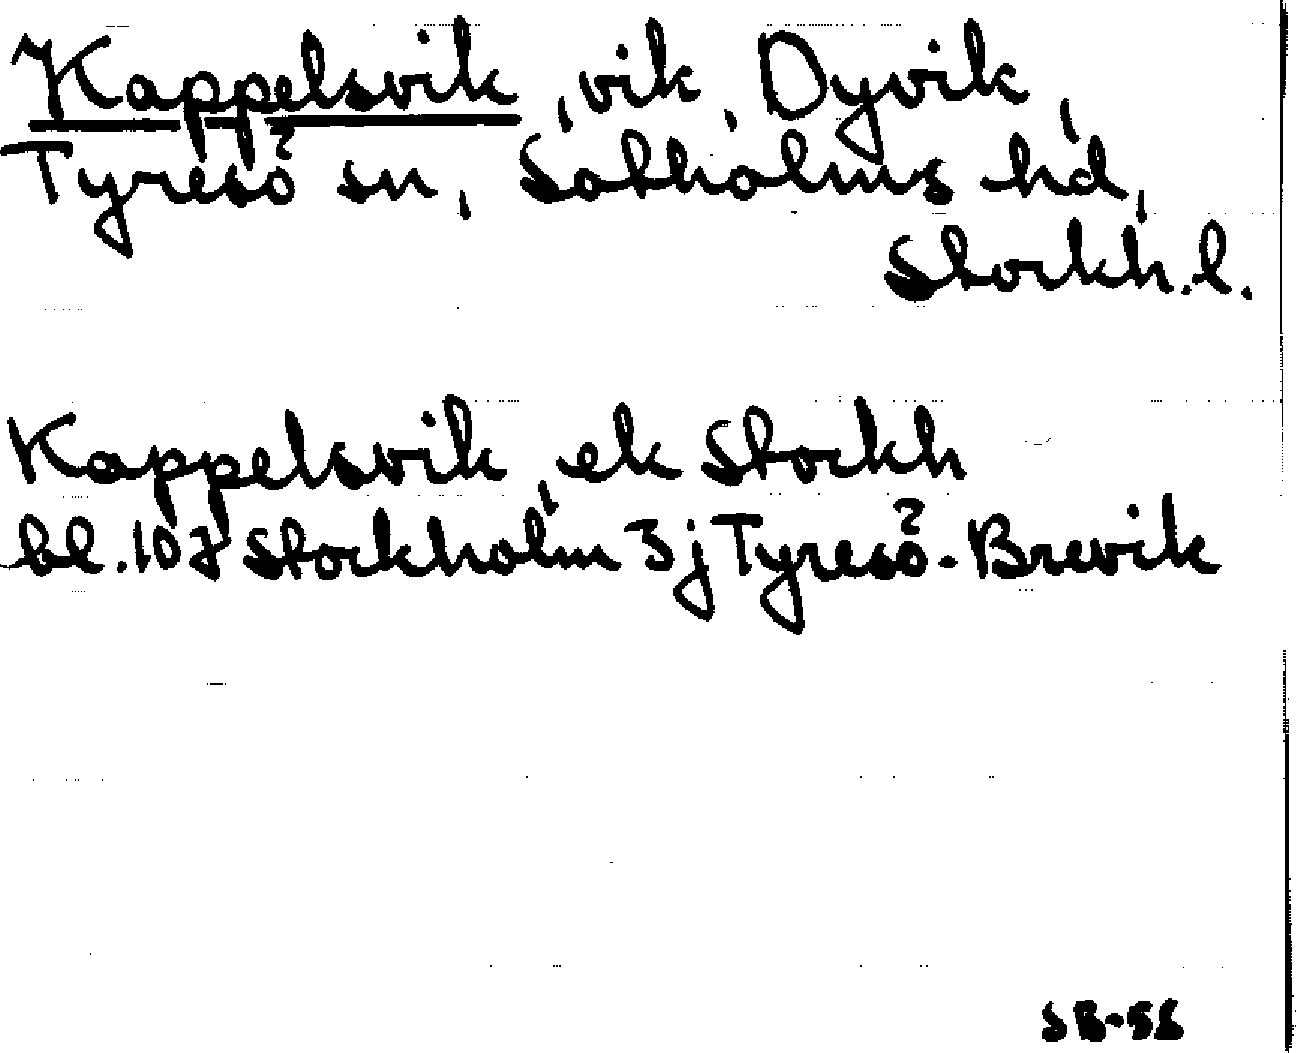 Kappelsvik, vik, Dyvik,
Tyresö sn, Sotholms hd,
Stockh. l.
Kappelsvik, ek Stockh
bl. 107 Stockholm 3j Tyresö-Brevik